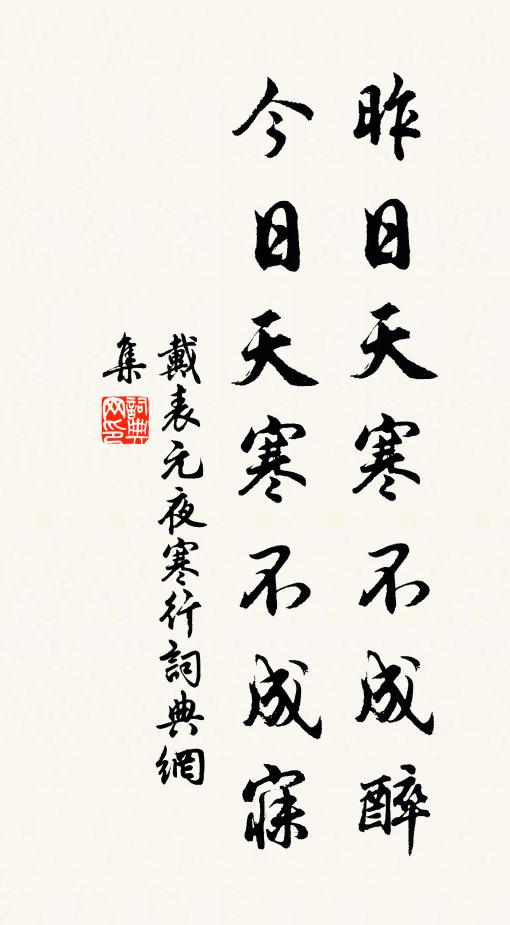 昨日天寒不成醉
今日天寒不成寐
戴表元夜寒行詞典網
集
詞典
网印